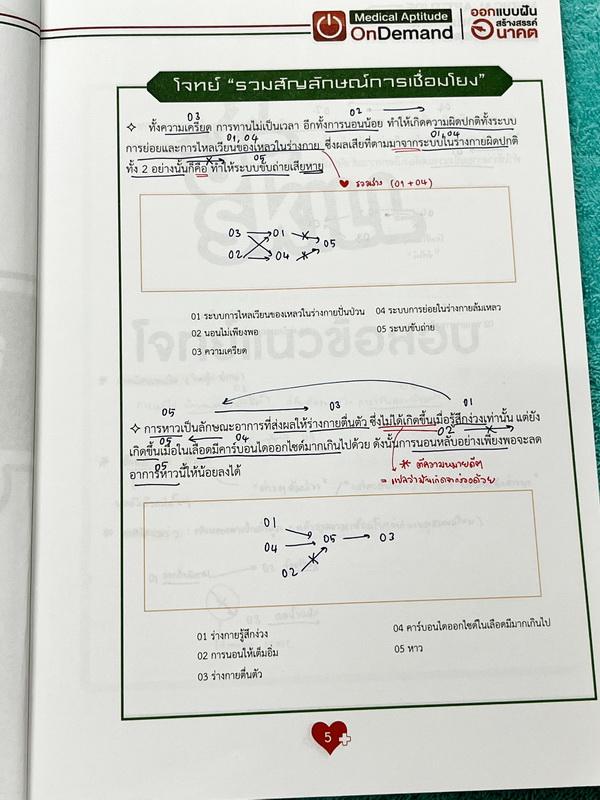 Medical Aptitude
OnDemand
ออกแบบฝัน
สร้างสรรค์
อนาคต
โจทย์ “รวมสัญลักษณ์การเชื่อมโยง”
03 02
✧ ทั้งความเครียด การทานไม่เป็นเวลา อีกทั้งการนอนน้อย ทำให้เกิดความผิดปกติทั้งระบบ
01, 04 01, 04
การย่อยและการไหลเวียนของเหลวในร่างกาย ซึ่งผลเสียที่ตามมาจากระบบในร่างกายผิดปกติ
05
ทั้ง 2 อย่างนั้นก็คือ ทำให้ระบบขับถ่ายเสียหาย
รวมร่าง (01 + 04)
03 01
05
02 04
01 ระบบการไหลเวียนของเหลวในร่างกายปั่นป่วน 04 ระบบการย่อยในร่างกายล้มเหลว
02 นอนไม่เพียงพอ 05 ระบบขับถ่าย
03 ความเครียด
05 03 01
✧ การหาวเป็นลักษณะอาการที่ส่งผลให้ร่างกายตื่นตัว ซึ่งไม่ได้เกิดขึ้นเมื่อรู้สึกง่วงเท่านั้น แต่ยัง
05 04 02
เกิดขึ้นเมื่อในเลือดมีคาร์บอนไดออกไซด์มากเกินไปด้วย ดังนั้นการนอนหลับอย่างเพียงพอจะลด
05
อาการหาวนี้ให้น้อยลงได้
** ตีความหมายดีๆ
= แปลว่ามันเกิดจากง่วงด้วย
01
04 05 03
02
01 ร่างกายรู้สึกง่วง 04 คาร์บอนไดออกไซด์ในเลือดมีมากเกินไป
02 การนอนให้เต็มอิ่ม 05 หาว
03 ร่างกายตื่นตัว
5